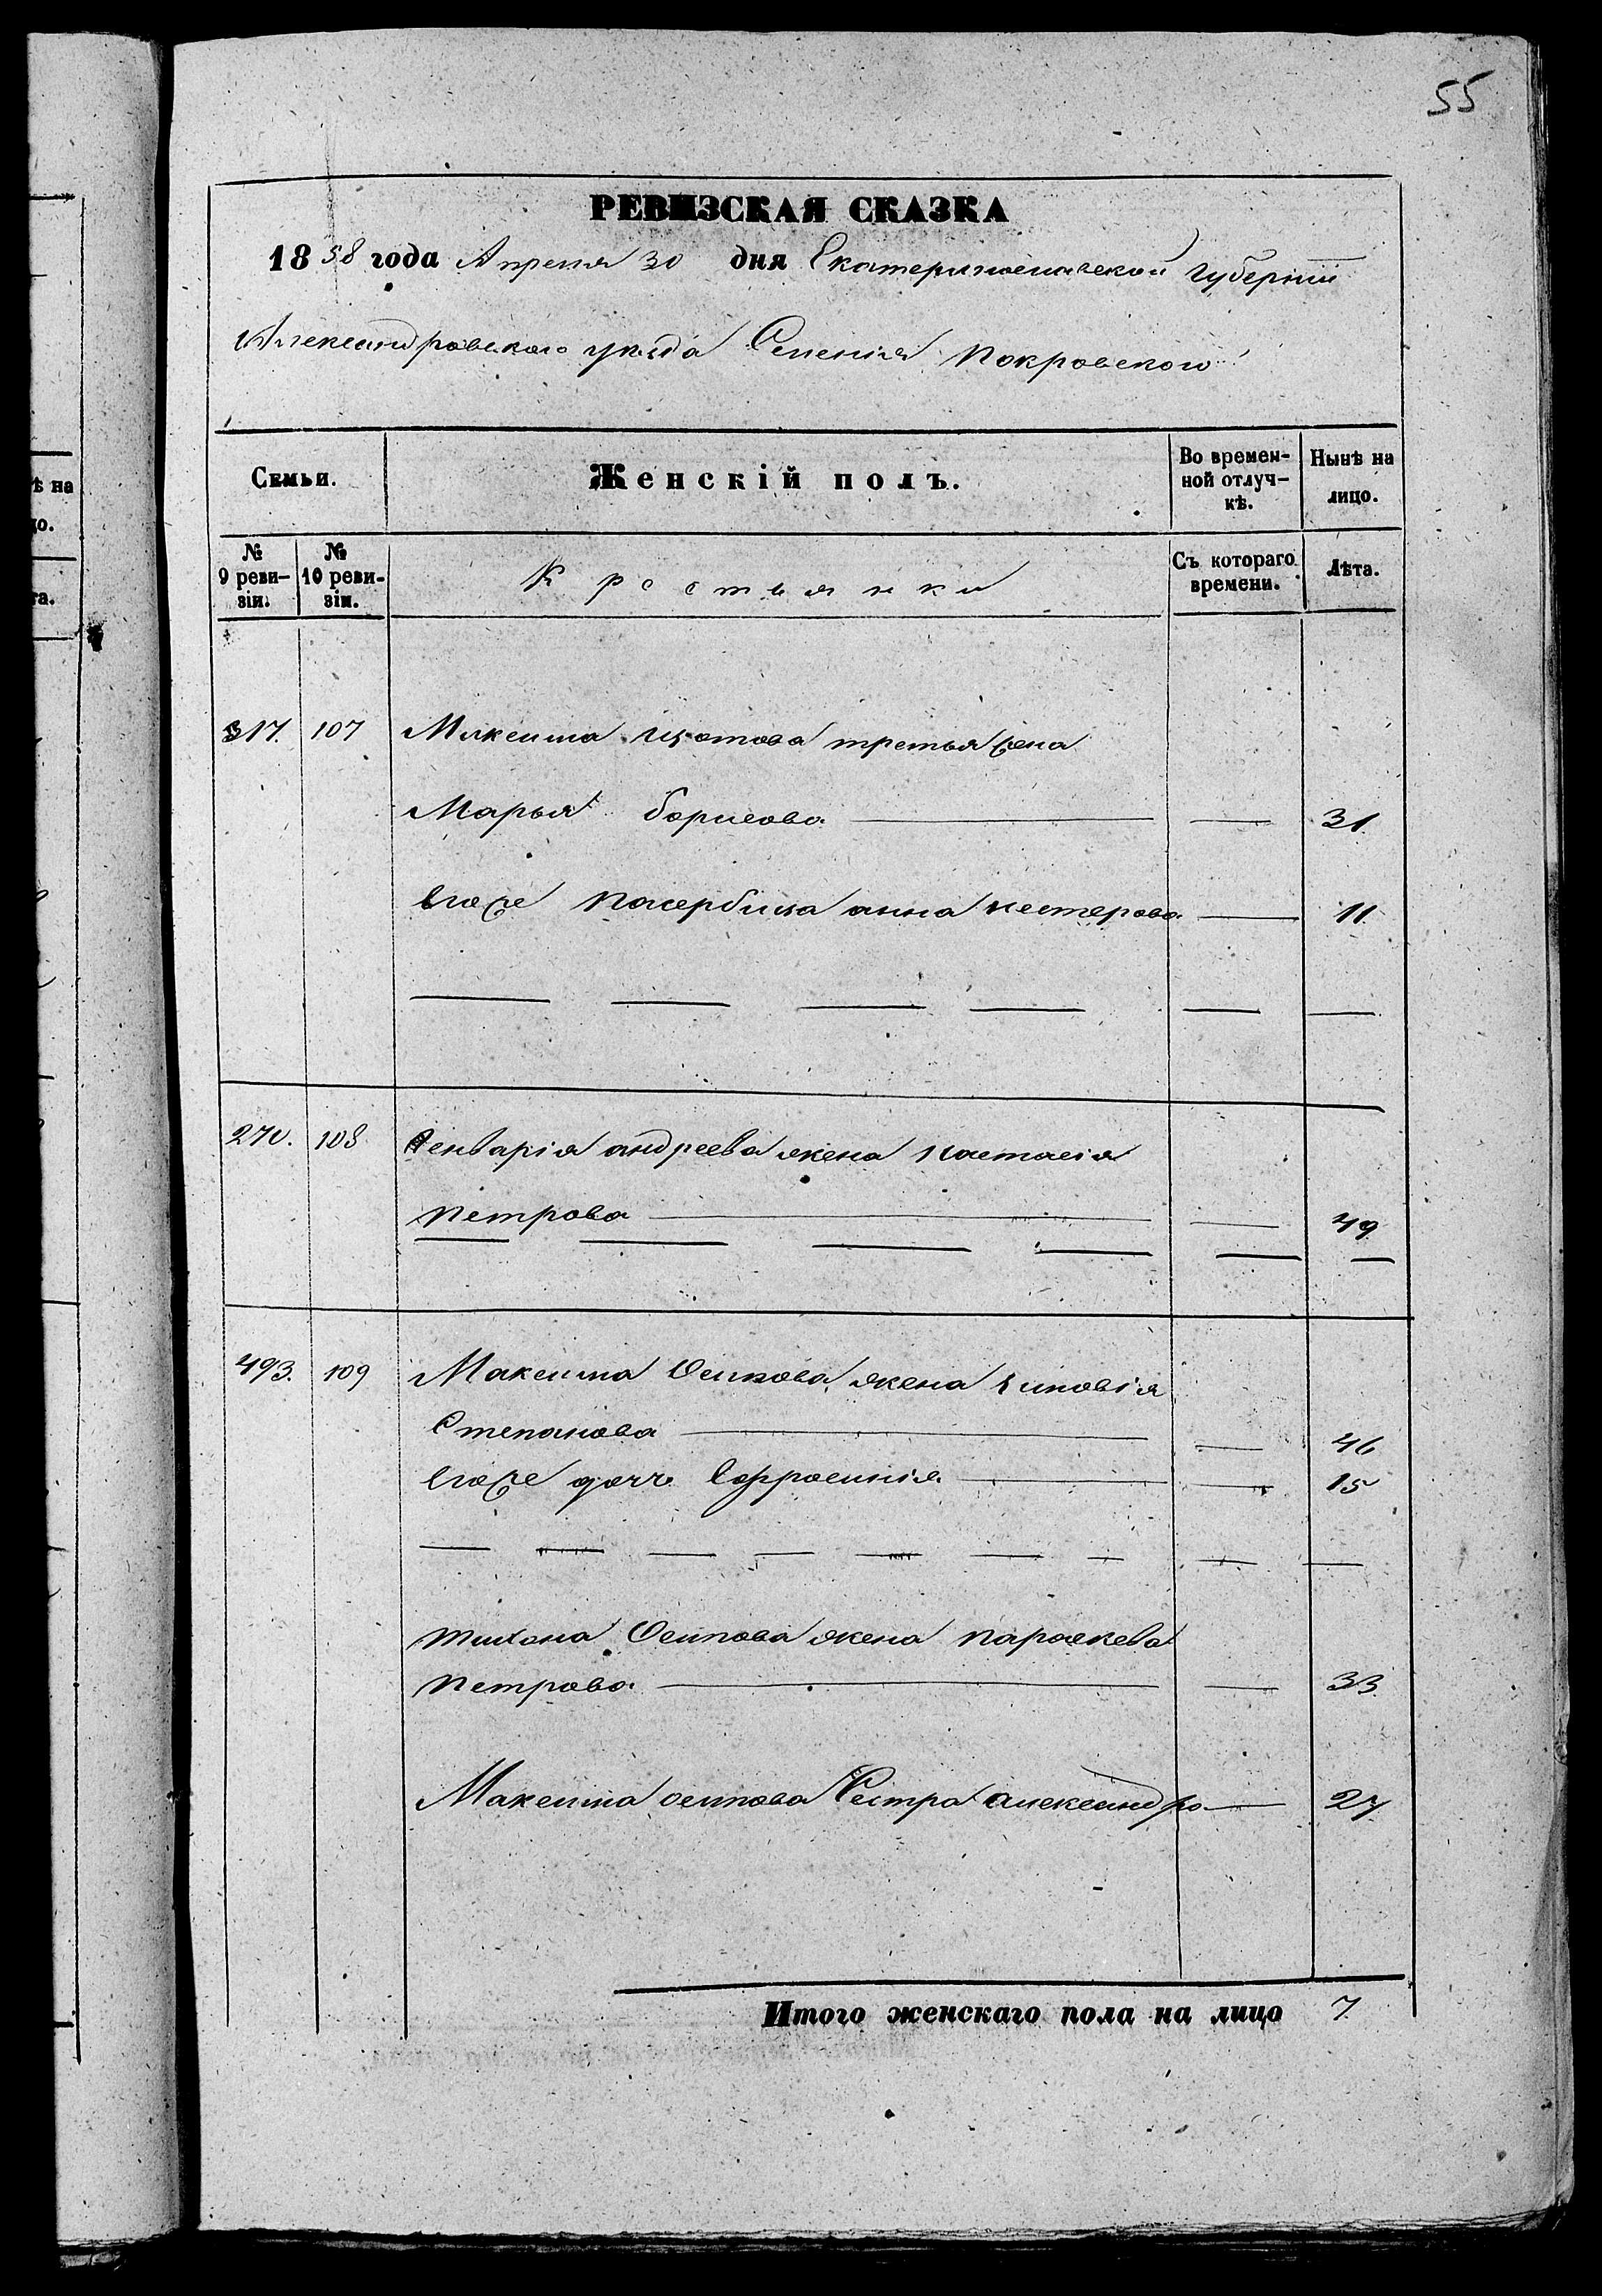 55
РЕВИЗСКАЯ СКАЗКА
1858 года Апреля 30 дня Екатеринославской Губерніи
Александровского уезда Селенія Покровского
Семьи.
Женскій полъ.
Во времен-
ной отлуч-
кѣ.
Нынѣ на
лицо.
№
9 реви-
зіи.
№
10 реви-
зіи.
Крестьянки
Съ котораго
времени.
Лѣта.
317. 107 Максима Изотова третья жена
Марья Борисова 31.
Егоже пасербица анна нестерова 11.
270. 108 Генварія андреева жена настасія
петрова 49
493. 109 Максима Осипова жена зиновія
Степанова 46
Егоже дочь Ефросинія 15
тихона Осипова жена параскева
петрова 33.
Максима осипова Сестра александра 27.
Итого женскаго пола на лицо 7.
ѣ на
цо.
та.